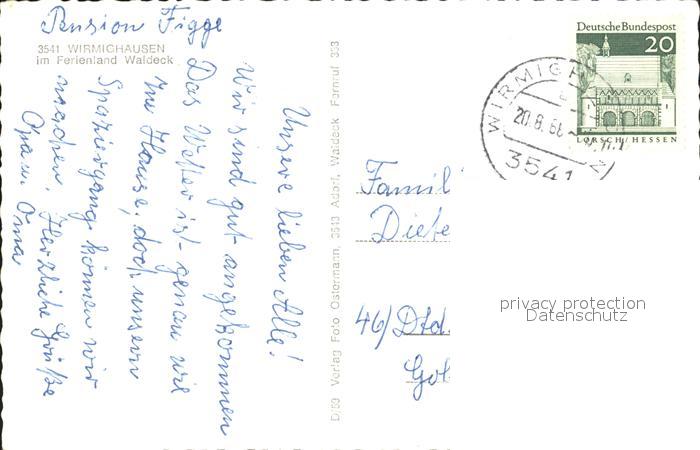 Pension Figge
3541 WIRMIGHAUSEN
im Ferienland Waldeck
Unsere lieben Alle!
Wir sind gut angekommen
Das Wetter ist genau wie
zu Hause, doch unsern
Spaziergang können wir
machen. Herzliche Grüße
Opa u. Oma
D/69 Verlag Foto Ostermann, 3543 Adorf, Waldeck Fernruf 353
Deutsche Bundespost
20
LORSCH/HESSEN
WIRMIGH
20.8.66
3541
Famil
Diebe
46/Dtd.
Gol
privacy protection
Datenschutz